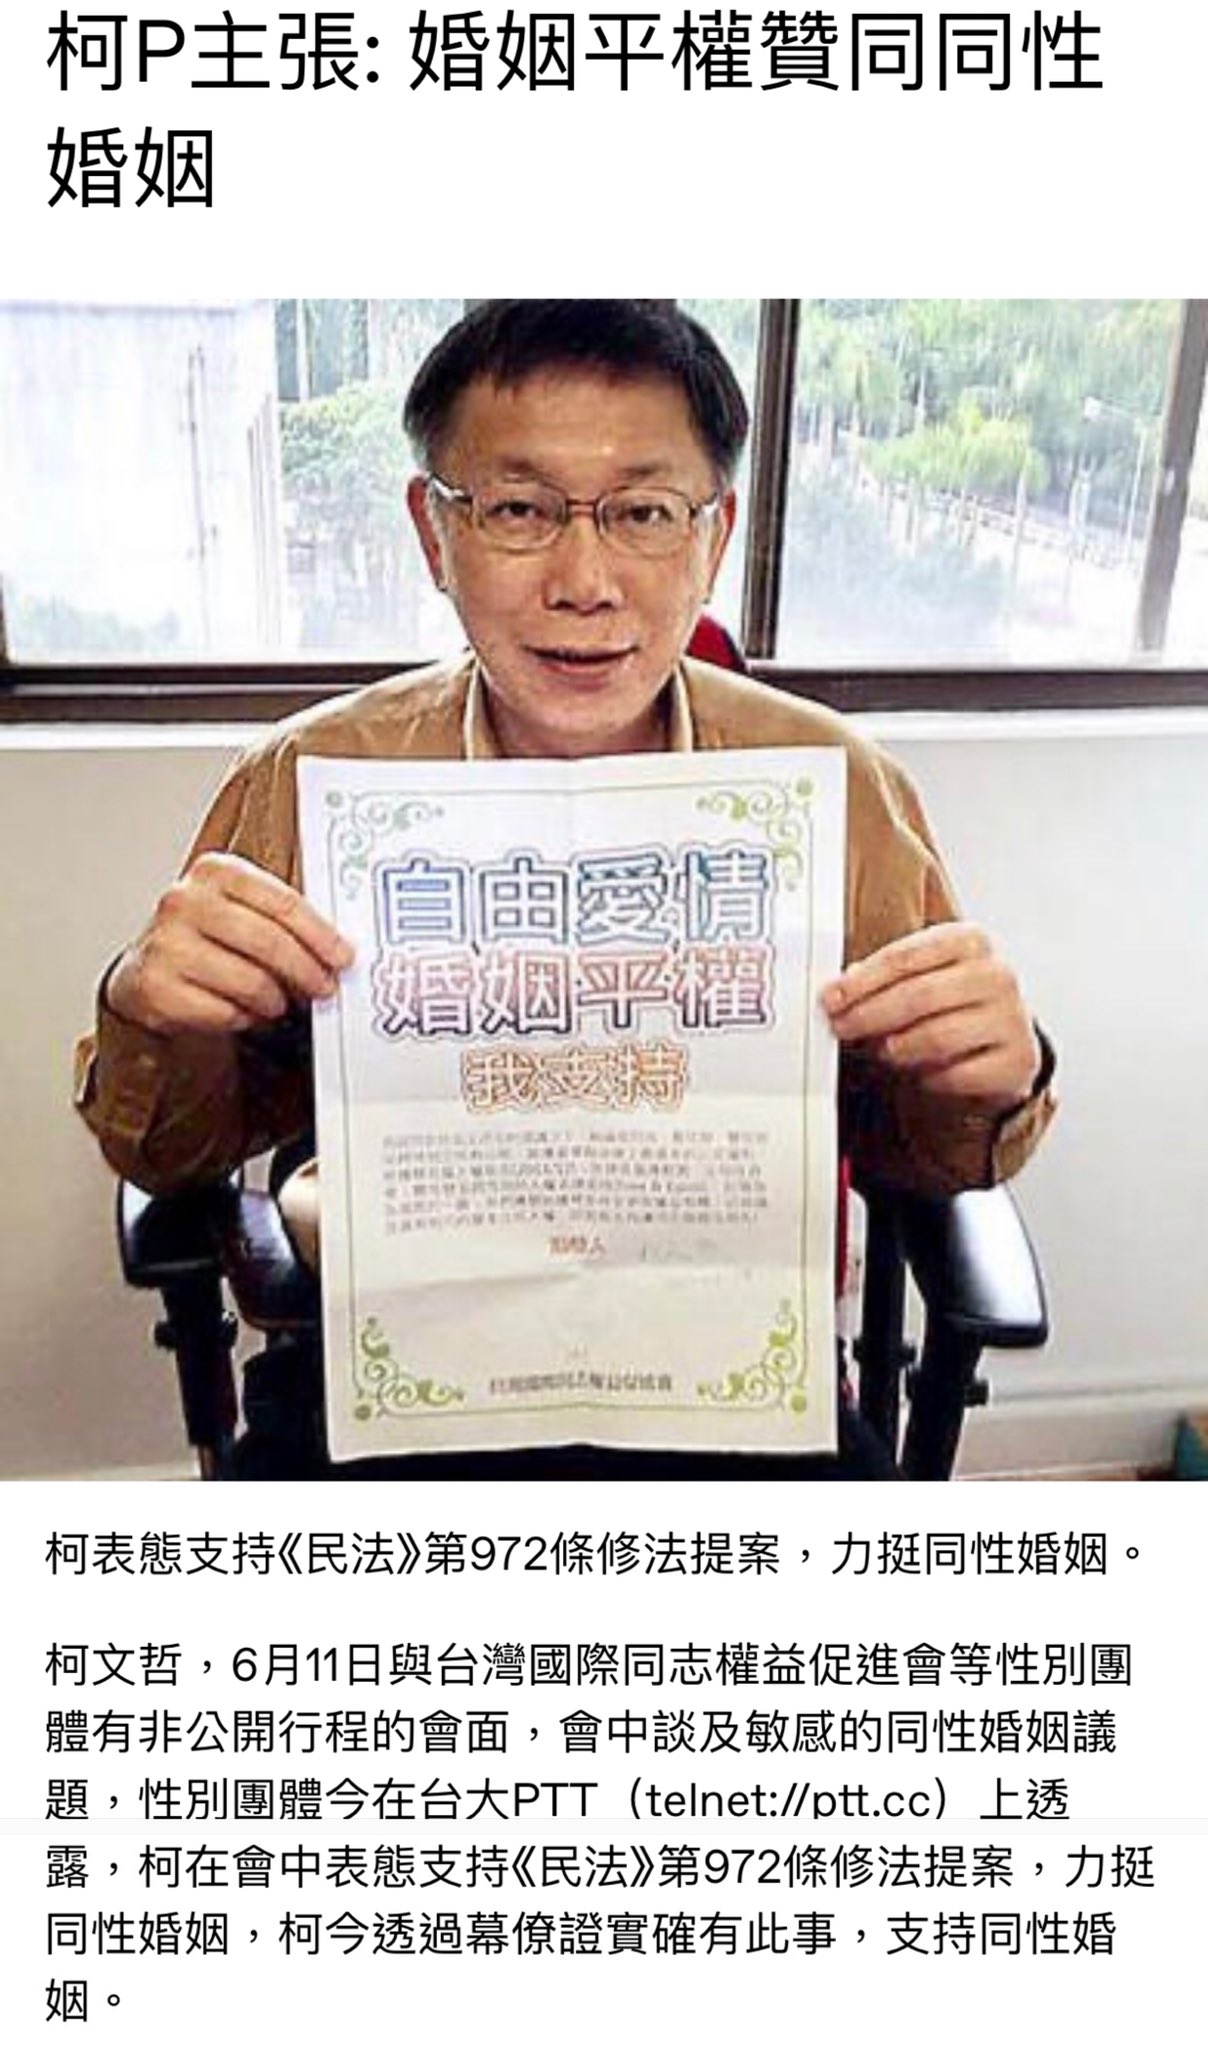 柯P主張: 婚姻平權贊同同性
婚姻
自由愛情
婚姻平權
我支持
柯表態支持《民法》第972條修法提案，力挺同性婚姻。
柯文哲，6月11日與台灣國際同志權益促進會等性別團
體有非公開行程的會面，會中談及敏感的同性婚姻議
題，性別團體今在台大PTT（telnet://ptt.cc）上透
露，柯在會中表態支持《民法》第972條修法提案，力挺
同性婚姻，柯今透過幕僚證實確有此事，支持同性婚
姻。